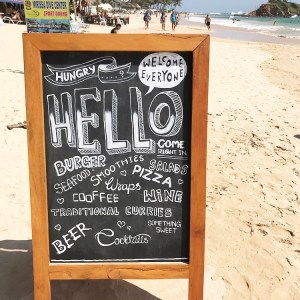 MIRISSA DIVE CENTER
HUNGRY
WELCOME
EVERYONE
HELLO
COME
RIGHT IN
BURGER
SALADS
SEAFOOD
SMOOTHIES
PIZZA
Wraps
COOFFEE
WINE
TRADITIONAL CURRIES
SOMETHING
SWEET
BEER
Cocktails